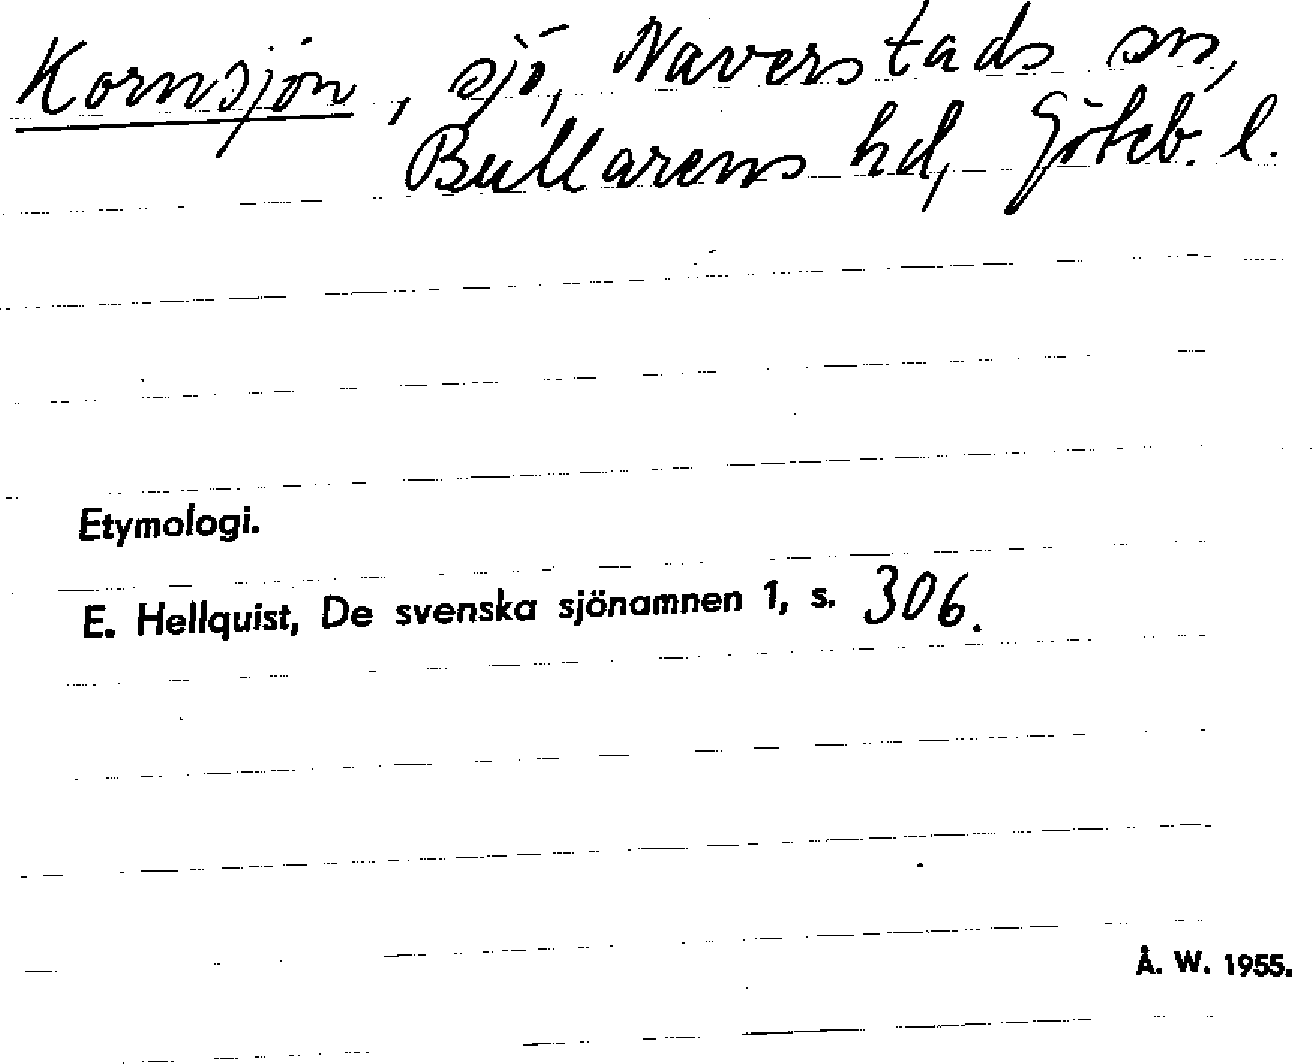 Kornsjön, sjö, Naverstads sn,
Bullarens hd, Göteb. l.
Etymologi.
E. Hellquist, De svenska sjönamnen 1, s. 306.
Å. W. 1955.